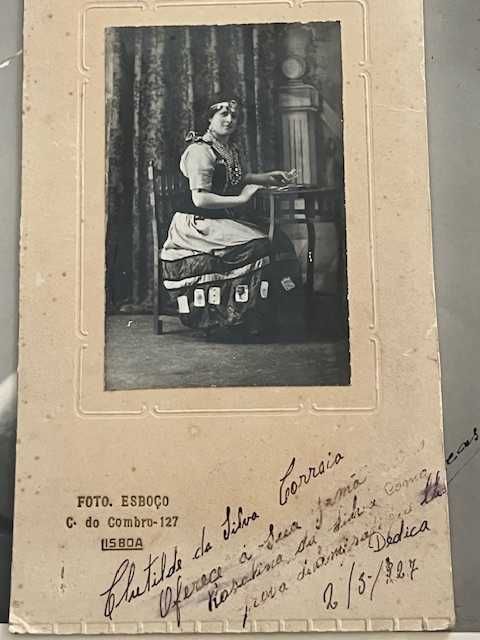 FOTO. ESBOÇO
C. do Combro-127
LISBOA
Clutilde da Silva Correia
Oferece á Sua Irmã
Rosalina da Silva como
prova de amizade que
Dedica
2/5/927